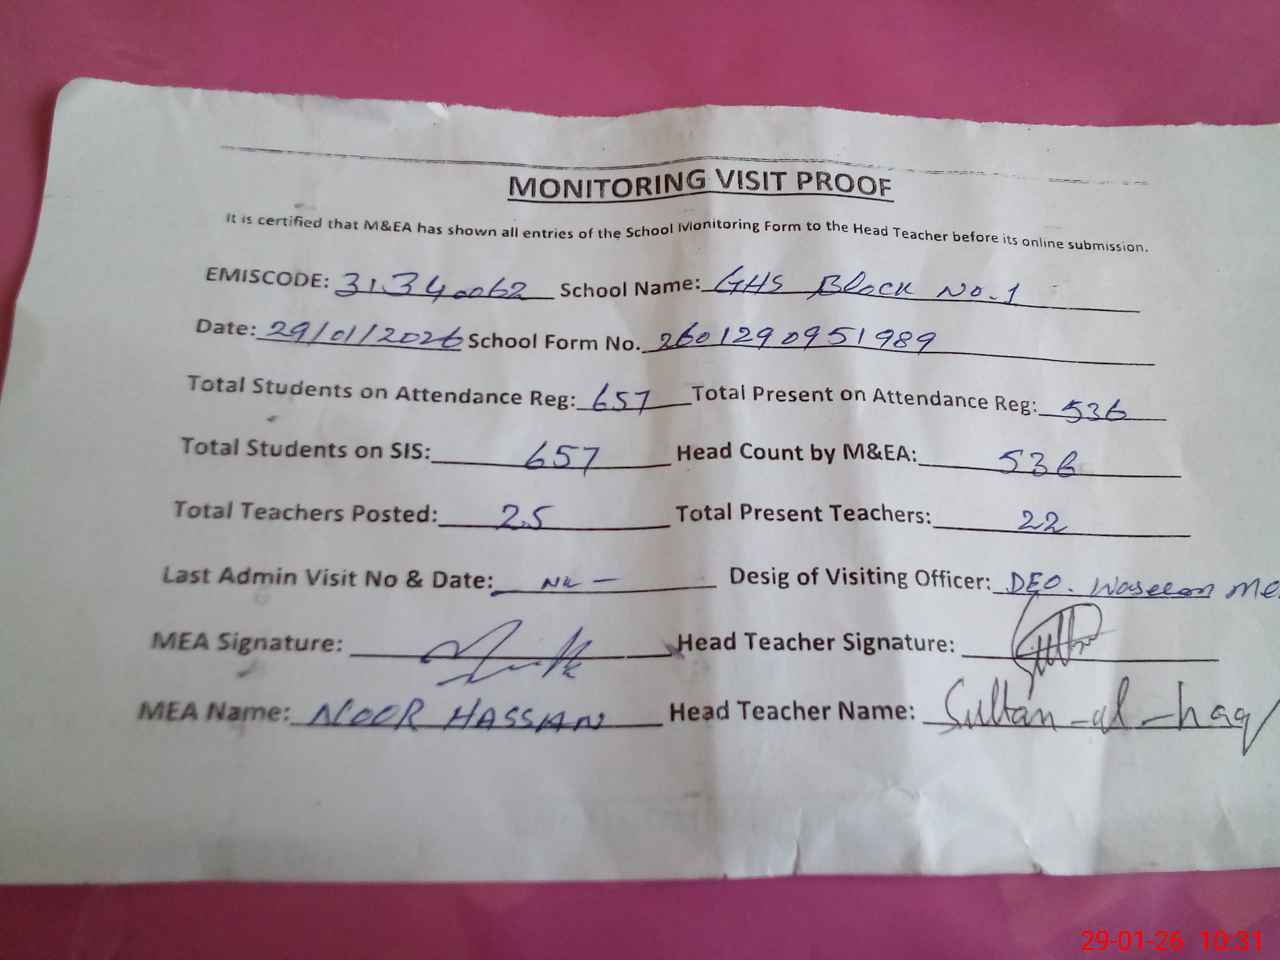 MONITORING VISIT PROOF
It is certified that M&EA has shown all entries of the School Monitoring Form to the Head Teacher before its online submission.
EMISCODE: 31340062 School Name: GHS Block No.1
Date: 29/01/2026 School Form No. 260129095 1989
Total Students on Attendance Reg: 657 Total Present on Attendance Reg: 536
Total Students on SIS: 657 Head Count by M&EA: 536
Total Teachers Posted: 25 Total Present Teachers: 22
Last Admin Visit No & Date: Desig of Visiting Officer: DEO.
MEA Signature: Head Teacher Signature:
MEA Name: NOOR HASSAN Head Teacher Name: Sultan-ul-haq
29-01-26 10:31